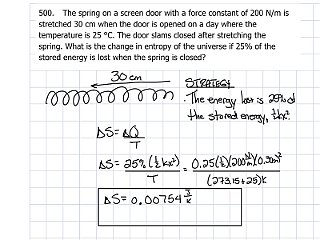 500. The spring on a screen door with a force constant of 200 N/m is
stretched 30 cm when the door is opened on a day where the
temperature is 25 °C. The door slams closed after stretching the
spring. What is the change in entropy of the universe if 25% of the
stored energy is lost when the spring is closed?
30 cm
STRATEGY
- The energy lost is 25% of
the stored energy, ½kx².
ΔS = ΔQ/T
ΔS = 25%(½kx²)/T = 0.25(½)(200 N/m)(0.30m)²/(273.15+25)K
ΔS = 0.00754 J/K